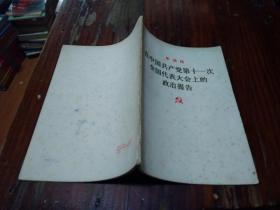 华国锋
在中国共产党第十一次
全国代表大会上的
政治报告